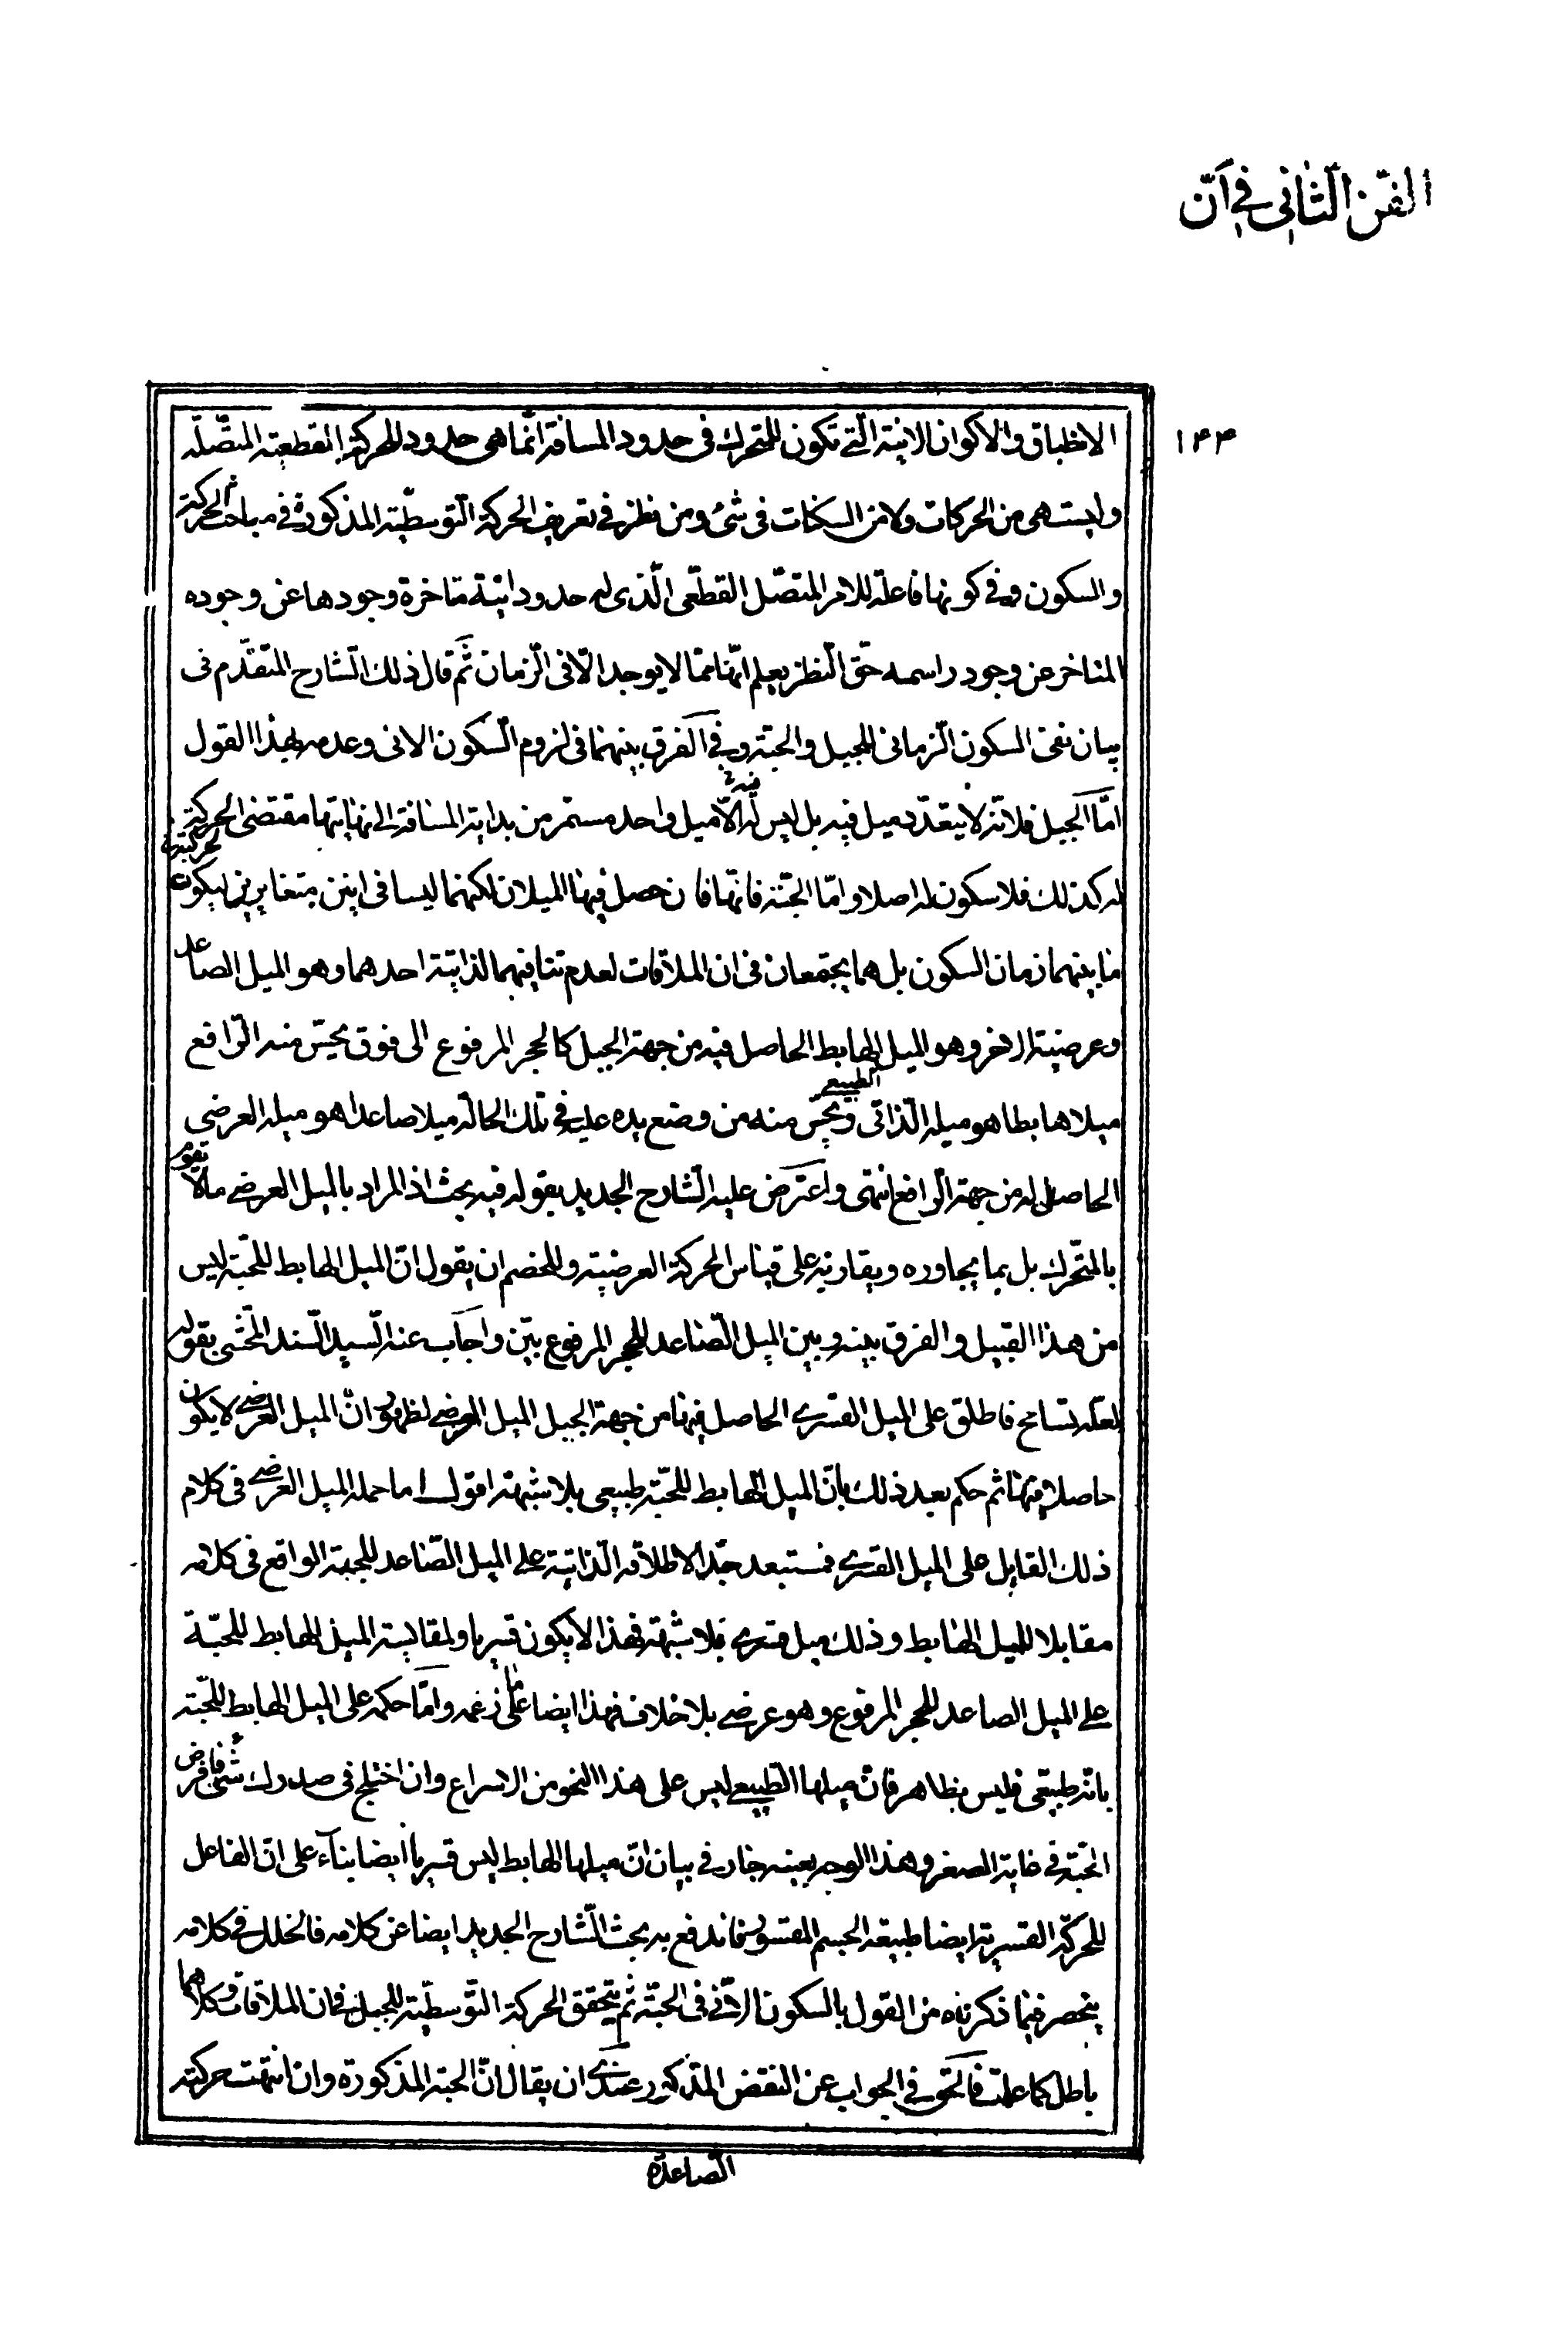 الفنّ الثّانی فے انّ
۱۴۴
الانطباق والاکوان الانیة الّتے تکون للمتحرك فی حدود المسافة انّما هی حدود للحرکة القطعیة المتّصلة
ولیست هی من الحرکات ولا من السکنات فی شئ ومن نظر فے تعریف الحرکة التّوسطیّة المذکورة فے مباحث الحرکة
والسکون وفے کونها فاعلة للامر المتصّل القطعّی الّذی له حدود انیّة متاخرة وجودها عن وجوده
المتاخر عن وجود راسمه حقّ النّظر یعلم انّها ممّا لا یوجد الّا فی الزّمان ثمّ قال ذلك الشّارح المتقدّم فی
بیان نفی السکون الزّمانی للجبل والحبّة وفے الفرق بینهما فی لزوم السّکون الانی وعدمه بهذا القول
امّا الجبل فلانّه لا یتعدّد میل فیه بل لیس له فیه الّا میل واحد مستمر من بدایة المسافة الی نهایتها مقتضی الحرکة
له کذلك فلا سکون له اصلا وامّا الحبّة فانّها فان حصل فیها المیلان لکنهما لیسا فی انین متغایرین لیکون
ما بینهما زمان السکون بل هما یجتمعان فی ان الملاقات لعدم تنافیهما لذاتیّة احدهما وهو المیل الصاعد
وعرضیة الاخر وهو المیل الهابط الحاصل فیه من جهة الجبل کالحجر المرفوع الی فوق یحسّ منه الرّافع
میلا هابطا هو میله الذّاتی الطبیعے ویحسّ منه من وضع یده علیه فے تلك الحالة میلا صاعدا هو میله العرضی
الحاصل له من جهة الرّافع انتهی واعترض علیه الشّارح الجدید بقوله فیه بحث اذ المراد بالمیل العرضے ما لا یقوم
بالمتحّرك بل بما یجاوره ویقارنه علی قیاس الحرکة العرضیة وللخصم ان یقول انّ المیل الهابط للحبّة لیس
من هذا القبیل والفرق بینه وبین المیل الصّاعد للحجر المرفوع بیّن واجاب عنه السّید السّند المحّشی بقوله
لعلّه تسامح فاطلق علی المیل القسرے الحاصل فیها من جهة الجبل المیل العرضے لظهور انّ المیل العرضے لا یکون
حاصلا فیها ثم حکم بعد ذلك بانّ المیل الهابط للحبّة طبیعی بلا شبهة اقول اما حمله المیل العرضے فی کلام
ذلك القایل علی المیل القسرے فمستبعد جدّا لاطلاقه الذّاتیّة علے المیل الصّاعد للحبة الواقع فی کلامه
مقابلا للمیل الهابط وذلك میل قسرے بلا شبهة فهذا لا یکون قسریا ولمقایسة المیل الهابط للحبّة
علے المیل الصاعد للحجر المرفوع وهو عرضے بلا خلاف فهذا ایضا علی زعمه وامّا حکمه علی المیل الهابط للحبّة
بانّه طبیعّی فلیس بظاهر فانّ میلها الطّبیعے لیس علی هذا النحو من الاسراع وان اختلج فی صدرك شئ فافرض
الحبّة فے غایة الصغر وهذا الوجه بعینه جار فے بیان انّ میلها الهابط لیس قسریا ایضا بناءً علی انّ الفاعل
للحرکة القسریة ایضا طبیعة الجسم المقسور فاندفع به بحث الشّارح الجدید ایضا عن کلامه فالخلل فے کلامه
ینحصر فیما ذکرناه من القول بالسکون الانے فی الحبّة ثم یتحقق الحرکة التّوسطّیة للجبل فے ان الملاقات وکلاهما
باطل کما علمت فالحق فے الجواب عن النقض المذکور عندے ان یقال انّ الحبة المذکورة وان انتهت حرکته
الصّاعدة